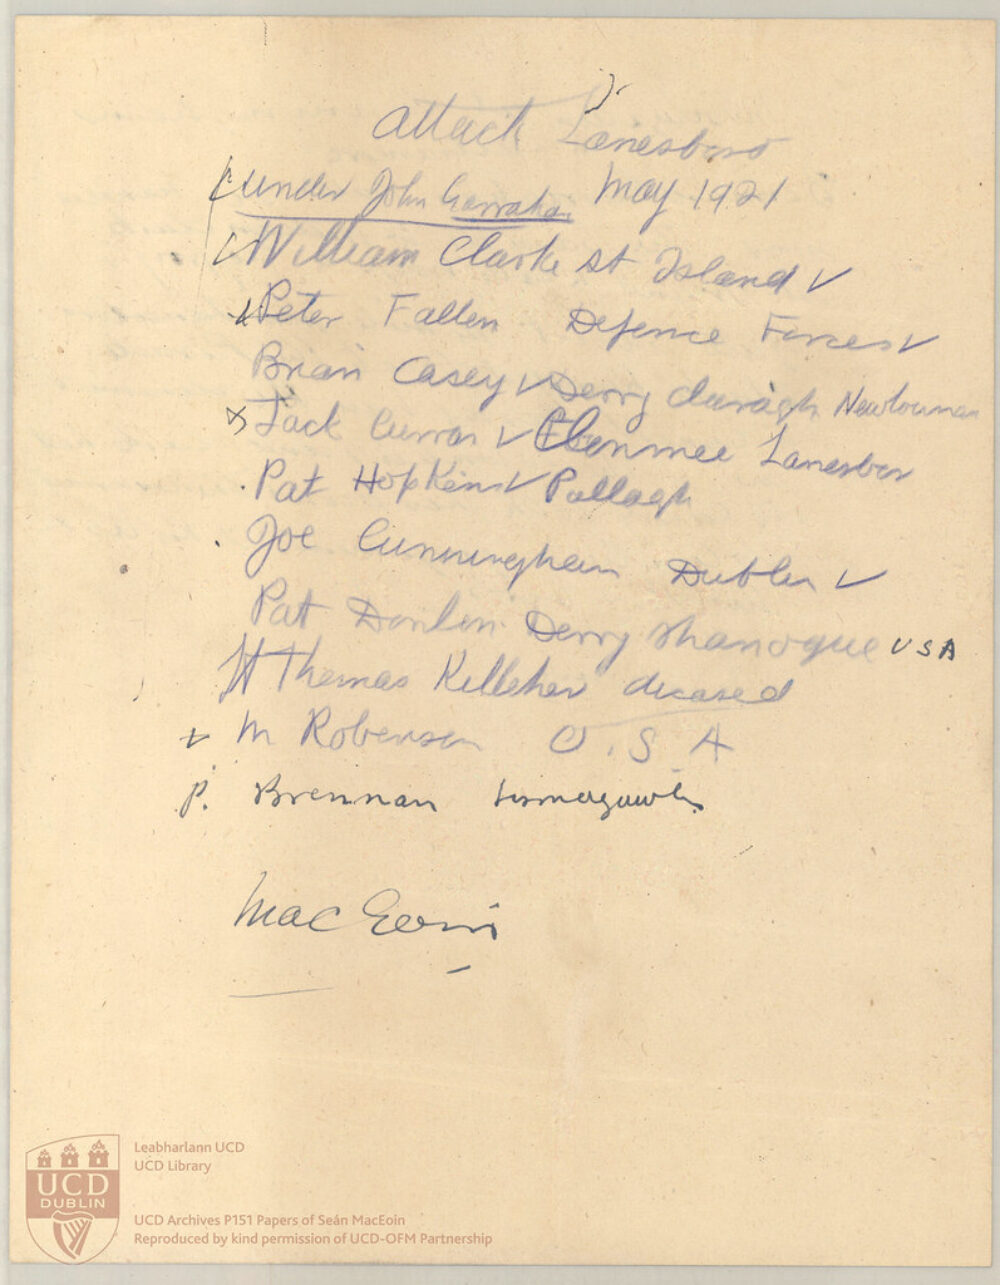 Attack Lanesboro
under John Garrahan May 1921
William Clarke St Island ✓
Peter Fallen Defence Forces ✓
Brian Casey ✓ Derry Newtowncas
x Jack Curran ✓ Clonmee Lanesboro
Pat Hopkins ✓ Pallagh
Joe Cunningham Dublin ✓
Pat Donlon Derry shanogue USA
Thomas Kelleher decased
M Robenson U.S.A
P. Brennan
Mac Eoin
Leabharlann UCD
UCD Library
UCD
DUBLIN
UCD Archives P151 Papers of Seán MacEoin
Reproduced by kind permission of UCD-OFM Partnership